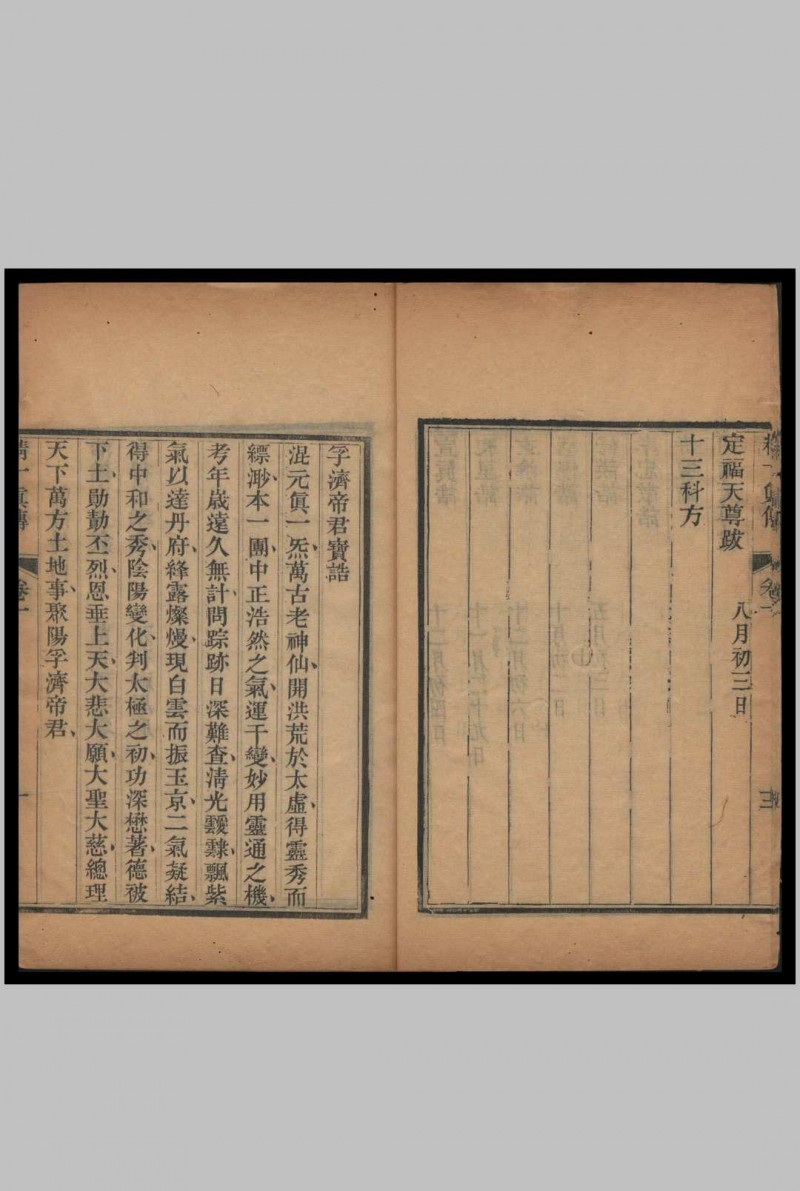 定福天尊跋　八月初三日
十三科方
三
孚濟帝君寶誥
混元眞一炁、萬古老神仙、開洪荒於太虛、得靈秀而
縹渺、本一團中正浩然之氣、運千變妙用靈通之機、
考年歲遠久無計、問踪跡日深難查、淸光靉靆、飄紫
氣以達丹府、絳露燦熳、現白雲而振玉京、二氣凝結、
得中和之秀、陰陽變化、判太極之初、功深懋著、德被
下土、勛勣丕烈、恩垂上天、大悲大願、大聖大慈、總理
天下萬方土地事、聚陽孚濟帝君、
精一眞傳
卷一
一